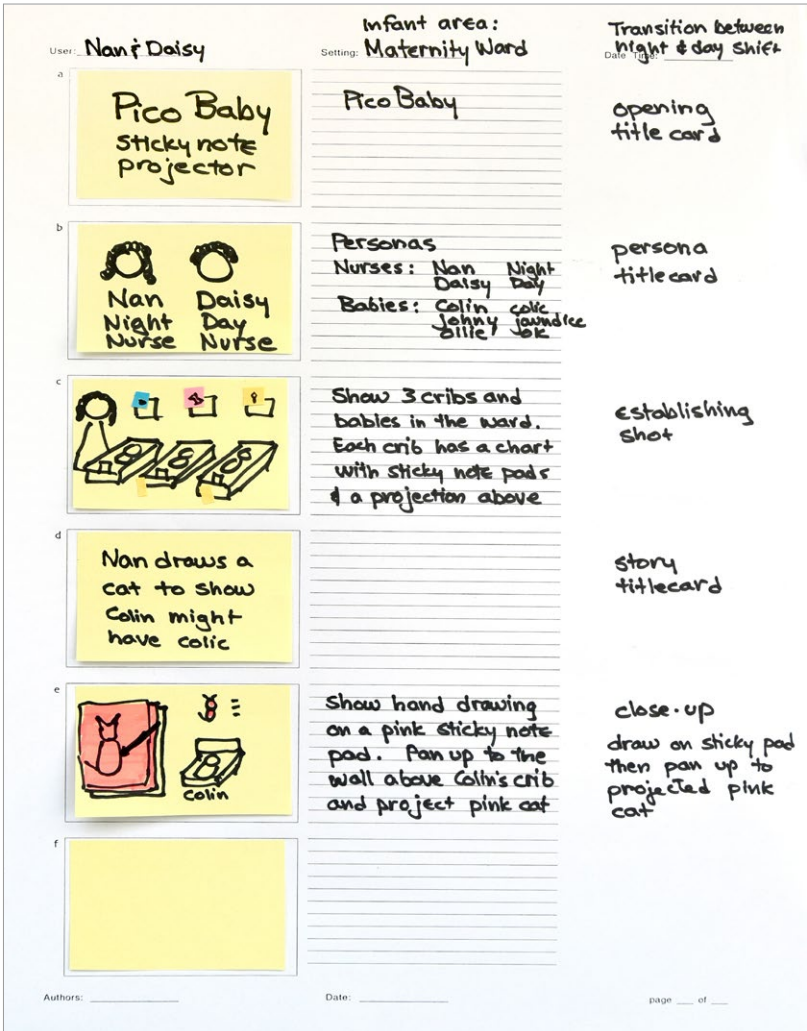 User: Nan & Daisy
Infant area:
Setting: Maternity Ward
Transition between
night & day shift
Date Time:
a
Pico Baby
sticky note
projector
Pico Baby
opening
title card
b
Nan
Night
Nurse
Daisy
Day
Nurse
Personas
Nurses: Nan Night
Daisy Day
Babies: Colin colic
Johny jaundice
Ollie ok
persona
titlecard
c
Show 3 cribs and
babies in the ward.
Each crib has a chart
with sticky note pads
& a projection above
establishing
shot
d
Nan draws a
cat to show
Colin might
have colic
story
titlecard
e
Colin
Show hand drawing
on a pink sticky note
pad. Pan up to the
wall above Colin's crib
and project pink cat
close-up
draw on sticky pad
then pan up to
projected pink
cat
f
Authors:
Date:
page of